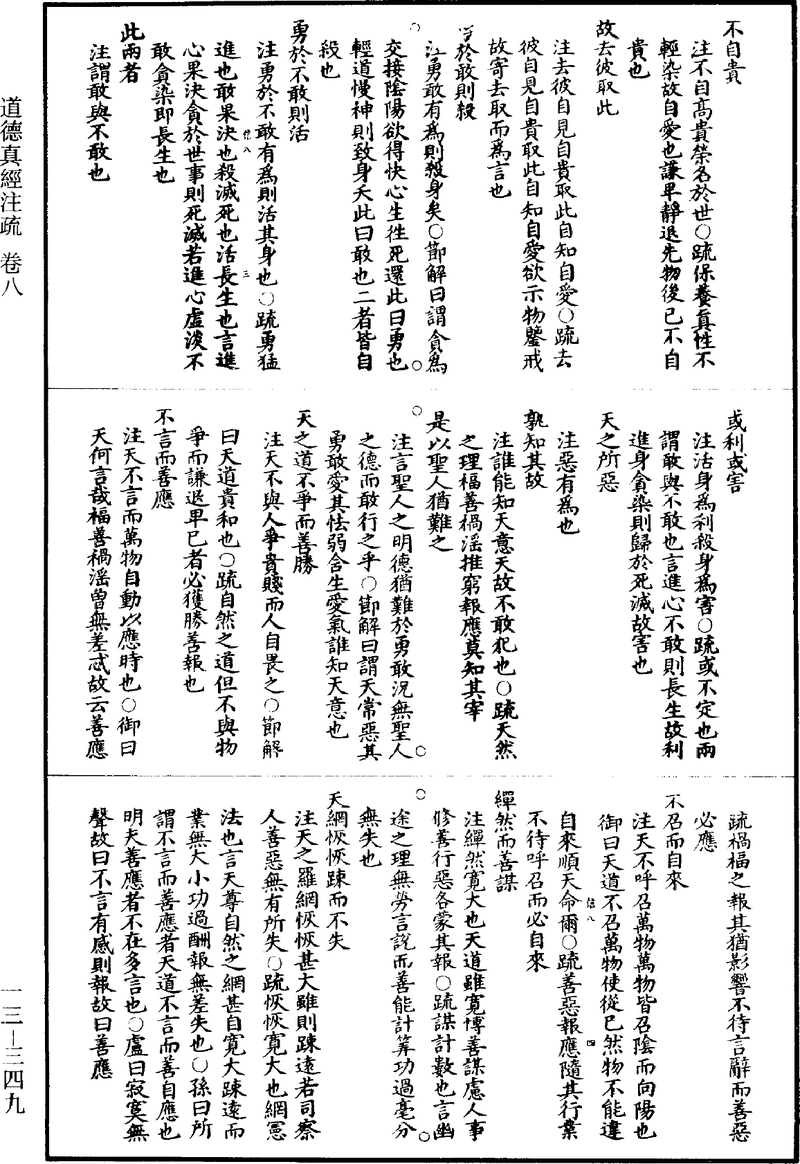 不自貴
注不自高貴榮名於世〇疏保養真性不
輕染故自愛也謙卑靜退先物後己不自
貴也
故去彼取此
注去彼自見自貴取此自知自愛〇疏去
彼自見自貴取此自知自愛欲示物鑒戒
故寄去取而為言也
於敢則殺
注勇敢有為則殺身矣〇節解曰謂貪為
交接陰陽欲得快心生徃死還此曰勇也
輕道慢神則致身夭此曰敢也二者皆自
殺也
勇於不敢則活
注勇於不敢有為則活其身也〇疏勇猛
進也敢果決也殺滅死也活長生也言進
心果決貪於世事則死滅若進心虛淡不
敢貪染即長生也
此兩者
注謂敢與不敢也
或利或害
注活身為利殺身為害〇疏或不定也兩
謂敢與不敢也言進心不敢則長生故利
進身貪染則歸於死滅故害也
天之所惡
注惡有為也
孰知其故
注誰能知天意天故不敢犯也〇疏天然
之理福善禍淫推窮報應莫知其宰
是以聖人猶難之
注言聖人之明德猶難於勇敢況無聖人
之德而敢行之乎〇節解曰謂天常惡其
勇敢愛其怯弱合生愛氣誰知天意也
天之道不爭而善勝
注天不與人爭貴賤而人自畏之〇節解
曰天道貴和也〇疏自然之道但不與物
爭而謙退卑己者必獲勝善報也
不言而善應
注天不言而萬物自動以應時也〇御曰
天何言哉福善禍淫曾無差忒故云善應
疏禍福之報其猶影響不待言辭而善惡
必應
不召而自來
注天不呼召萬物萬物皆召陰而向陽也
御曰天道不召萬物使從已然物不能違
自來順天命爾〇疏善惡報應隨其行業
不待呼召而必自來
繟然而善謀
注繟然寬大也天道雖寬博善謀慮人事
修善行惡各蒙其報〇疏謀計數也言幽
途之理無勞言說而善能計筭功過毫分
無失也
天網恢恢踈而不失
注天之羅網恢恢甚大雖則踈遠若司察
人善惡無有所失〇疏恢恢寬大也網憲
法也言天尊自然之網甚自寬大踈遠而
業無大小功過酬報無差失也〇孫曰所
謂不言而善應者天道不言而善自應也
明夫善應者不在多言也〇盧曰寂寞無
聲故曰不言有感則報故曰善應
道德真經注疏 卷八
一三—三四九